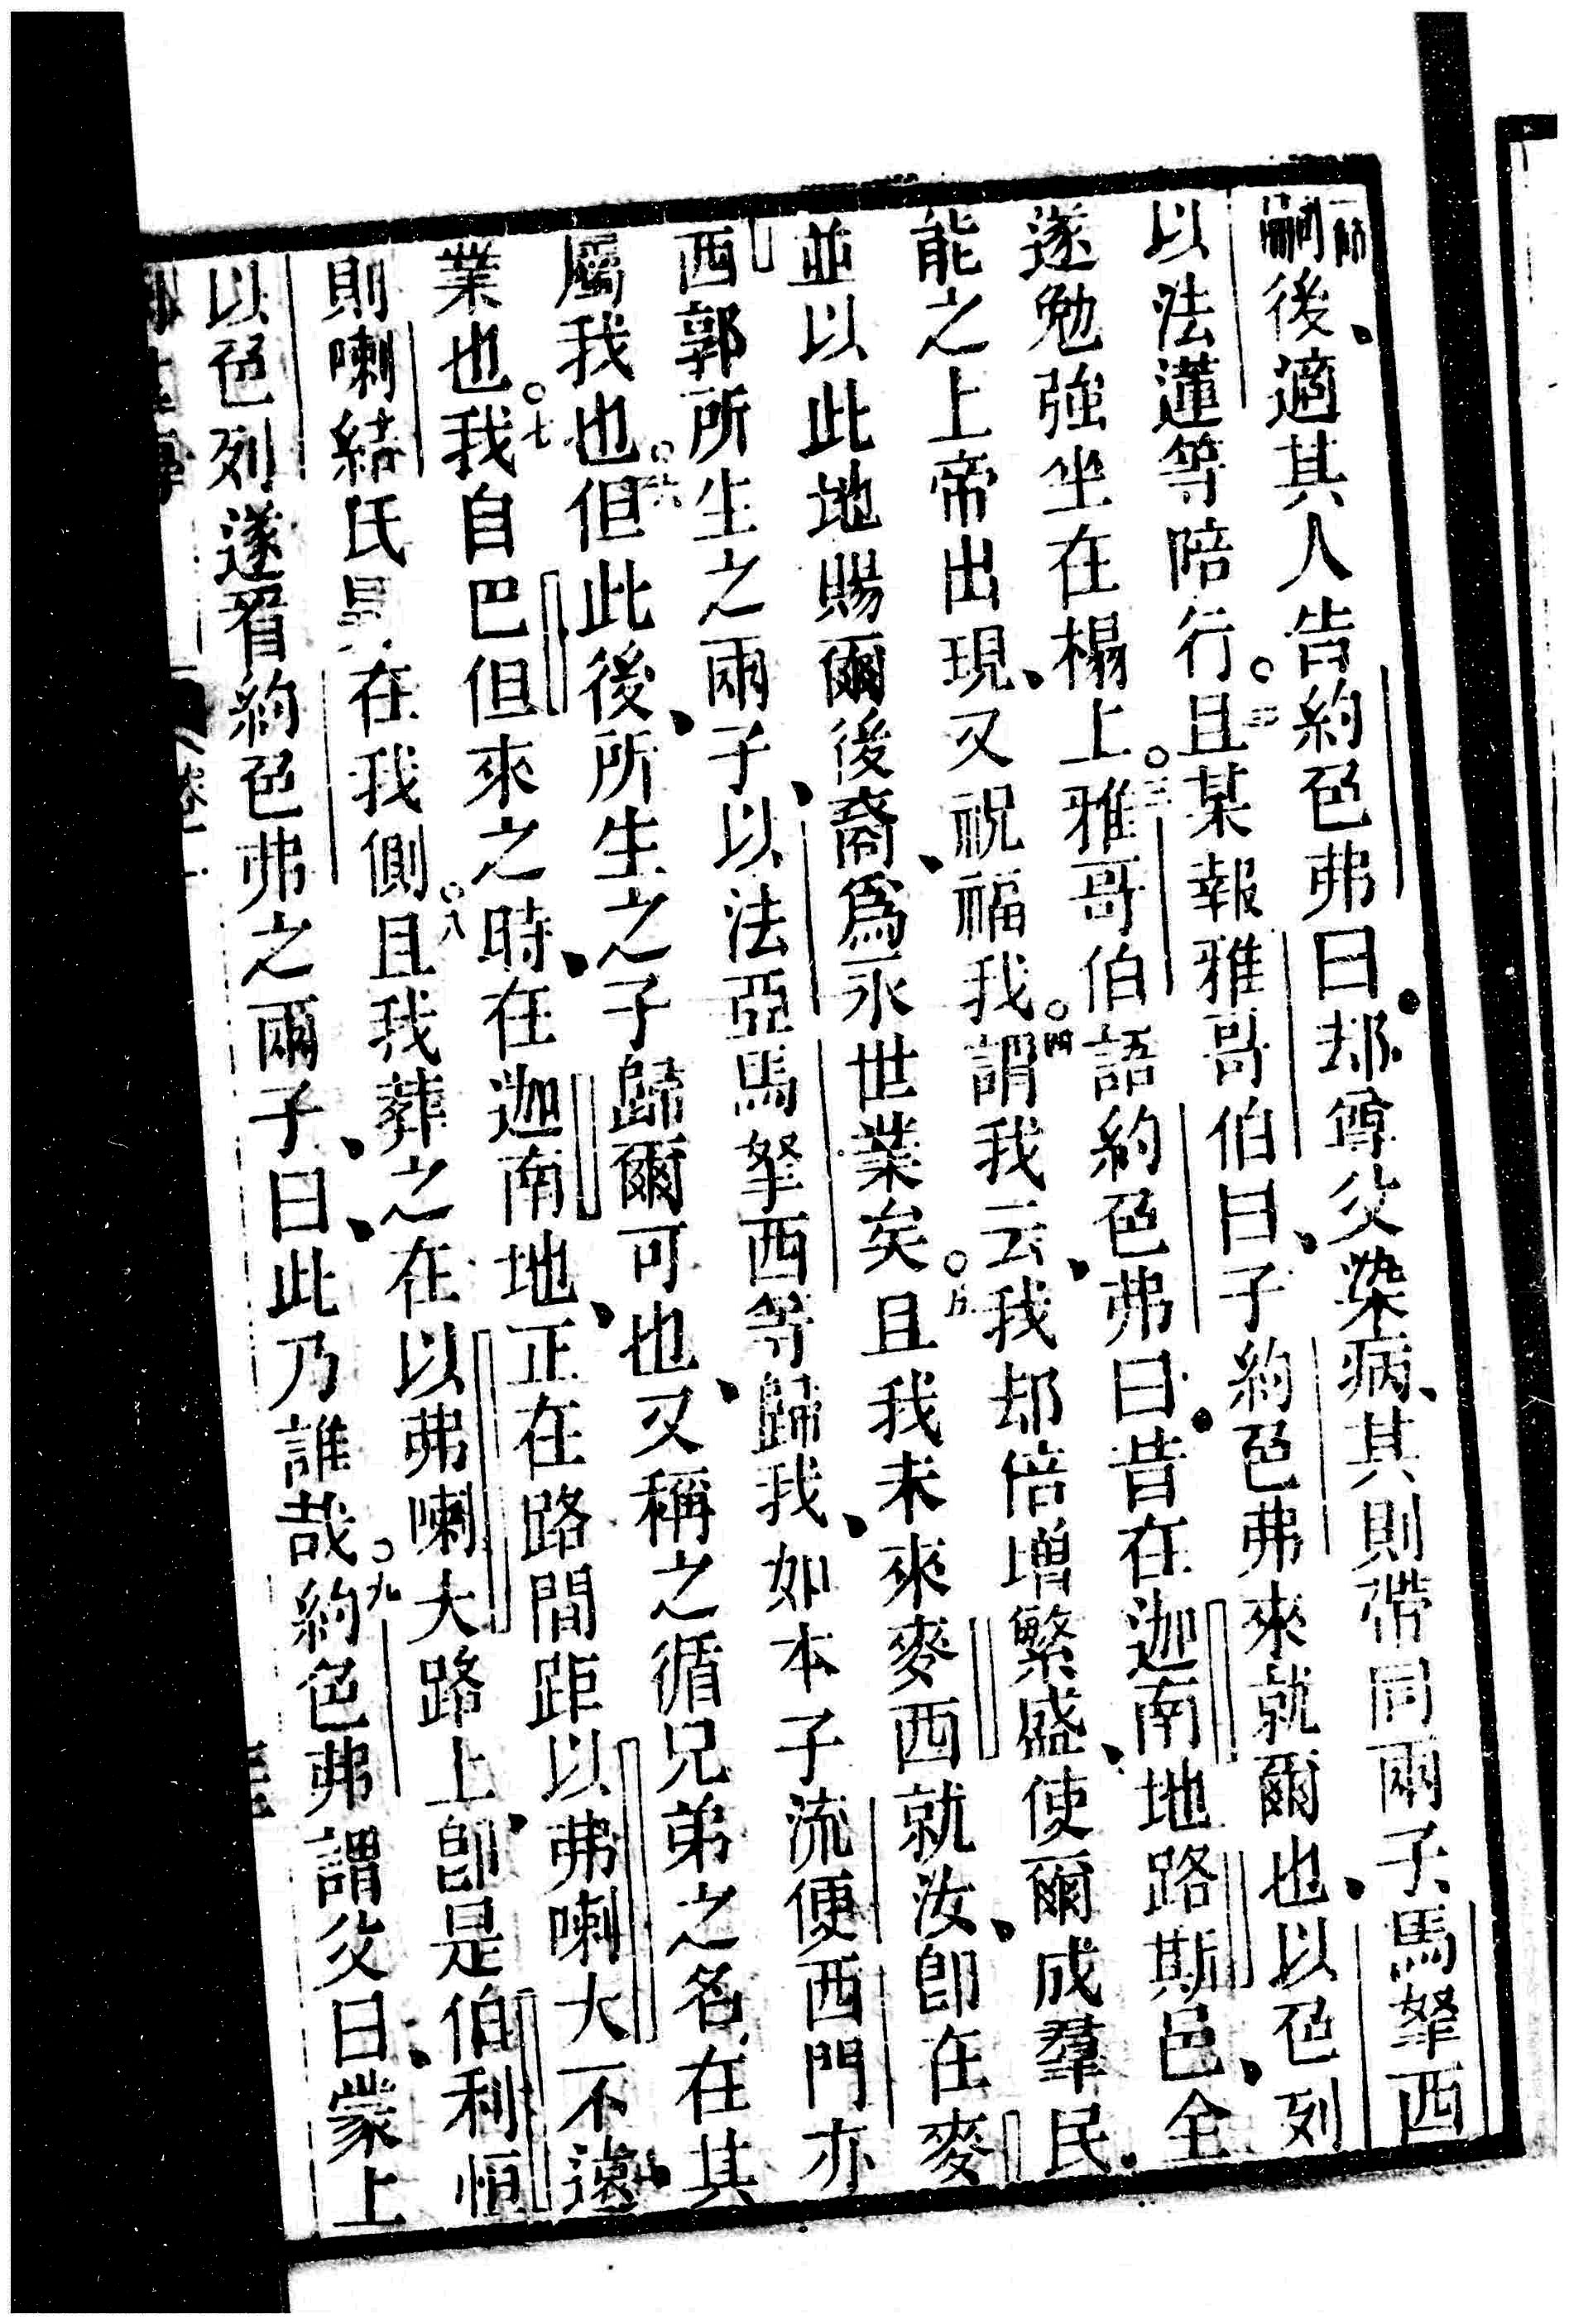 嗣後、適其人告約色弗曰却尊父染病、其則帶同兩子、馬拏西
以法蓮等陪行。○二且某報雅哥伯曰、子約色弗來就爾也、以色列
遂勉強坐在榻上。○三雅哥伯語約色弗曰昔在迦南地路斯邑、全
能之上帝出現、又祝福我○四謂我云、我却倍增繁盛、使爾成羣民
並以此地賜爾後裔、爲永世業矣。○五且我未來麥西就汝、即在麥
西郭所生之兩子、以法亞馬拏西等歸我、如本子流便西門亦
屬我也○六但此後、所生之子歸爾可也、又稱之循兄弟之名、在其
業也○七我自巴但來之時、在迦南地、正在路間距以弗喇大不遠、
則喇結氏在我側○八且我葬之在以弗喇大路上、即是伯利恒
以色列遂看約色弗之兩子、曰、此乃誰哉○九約色弗謂父曰、蒙上